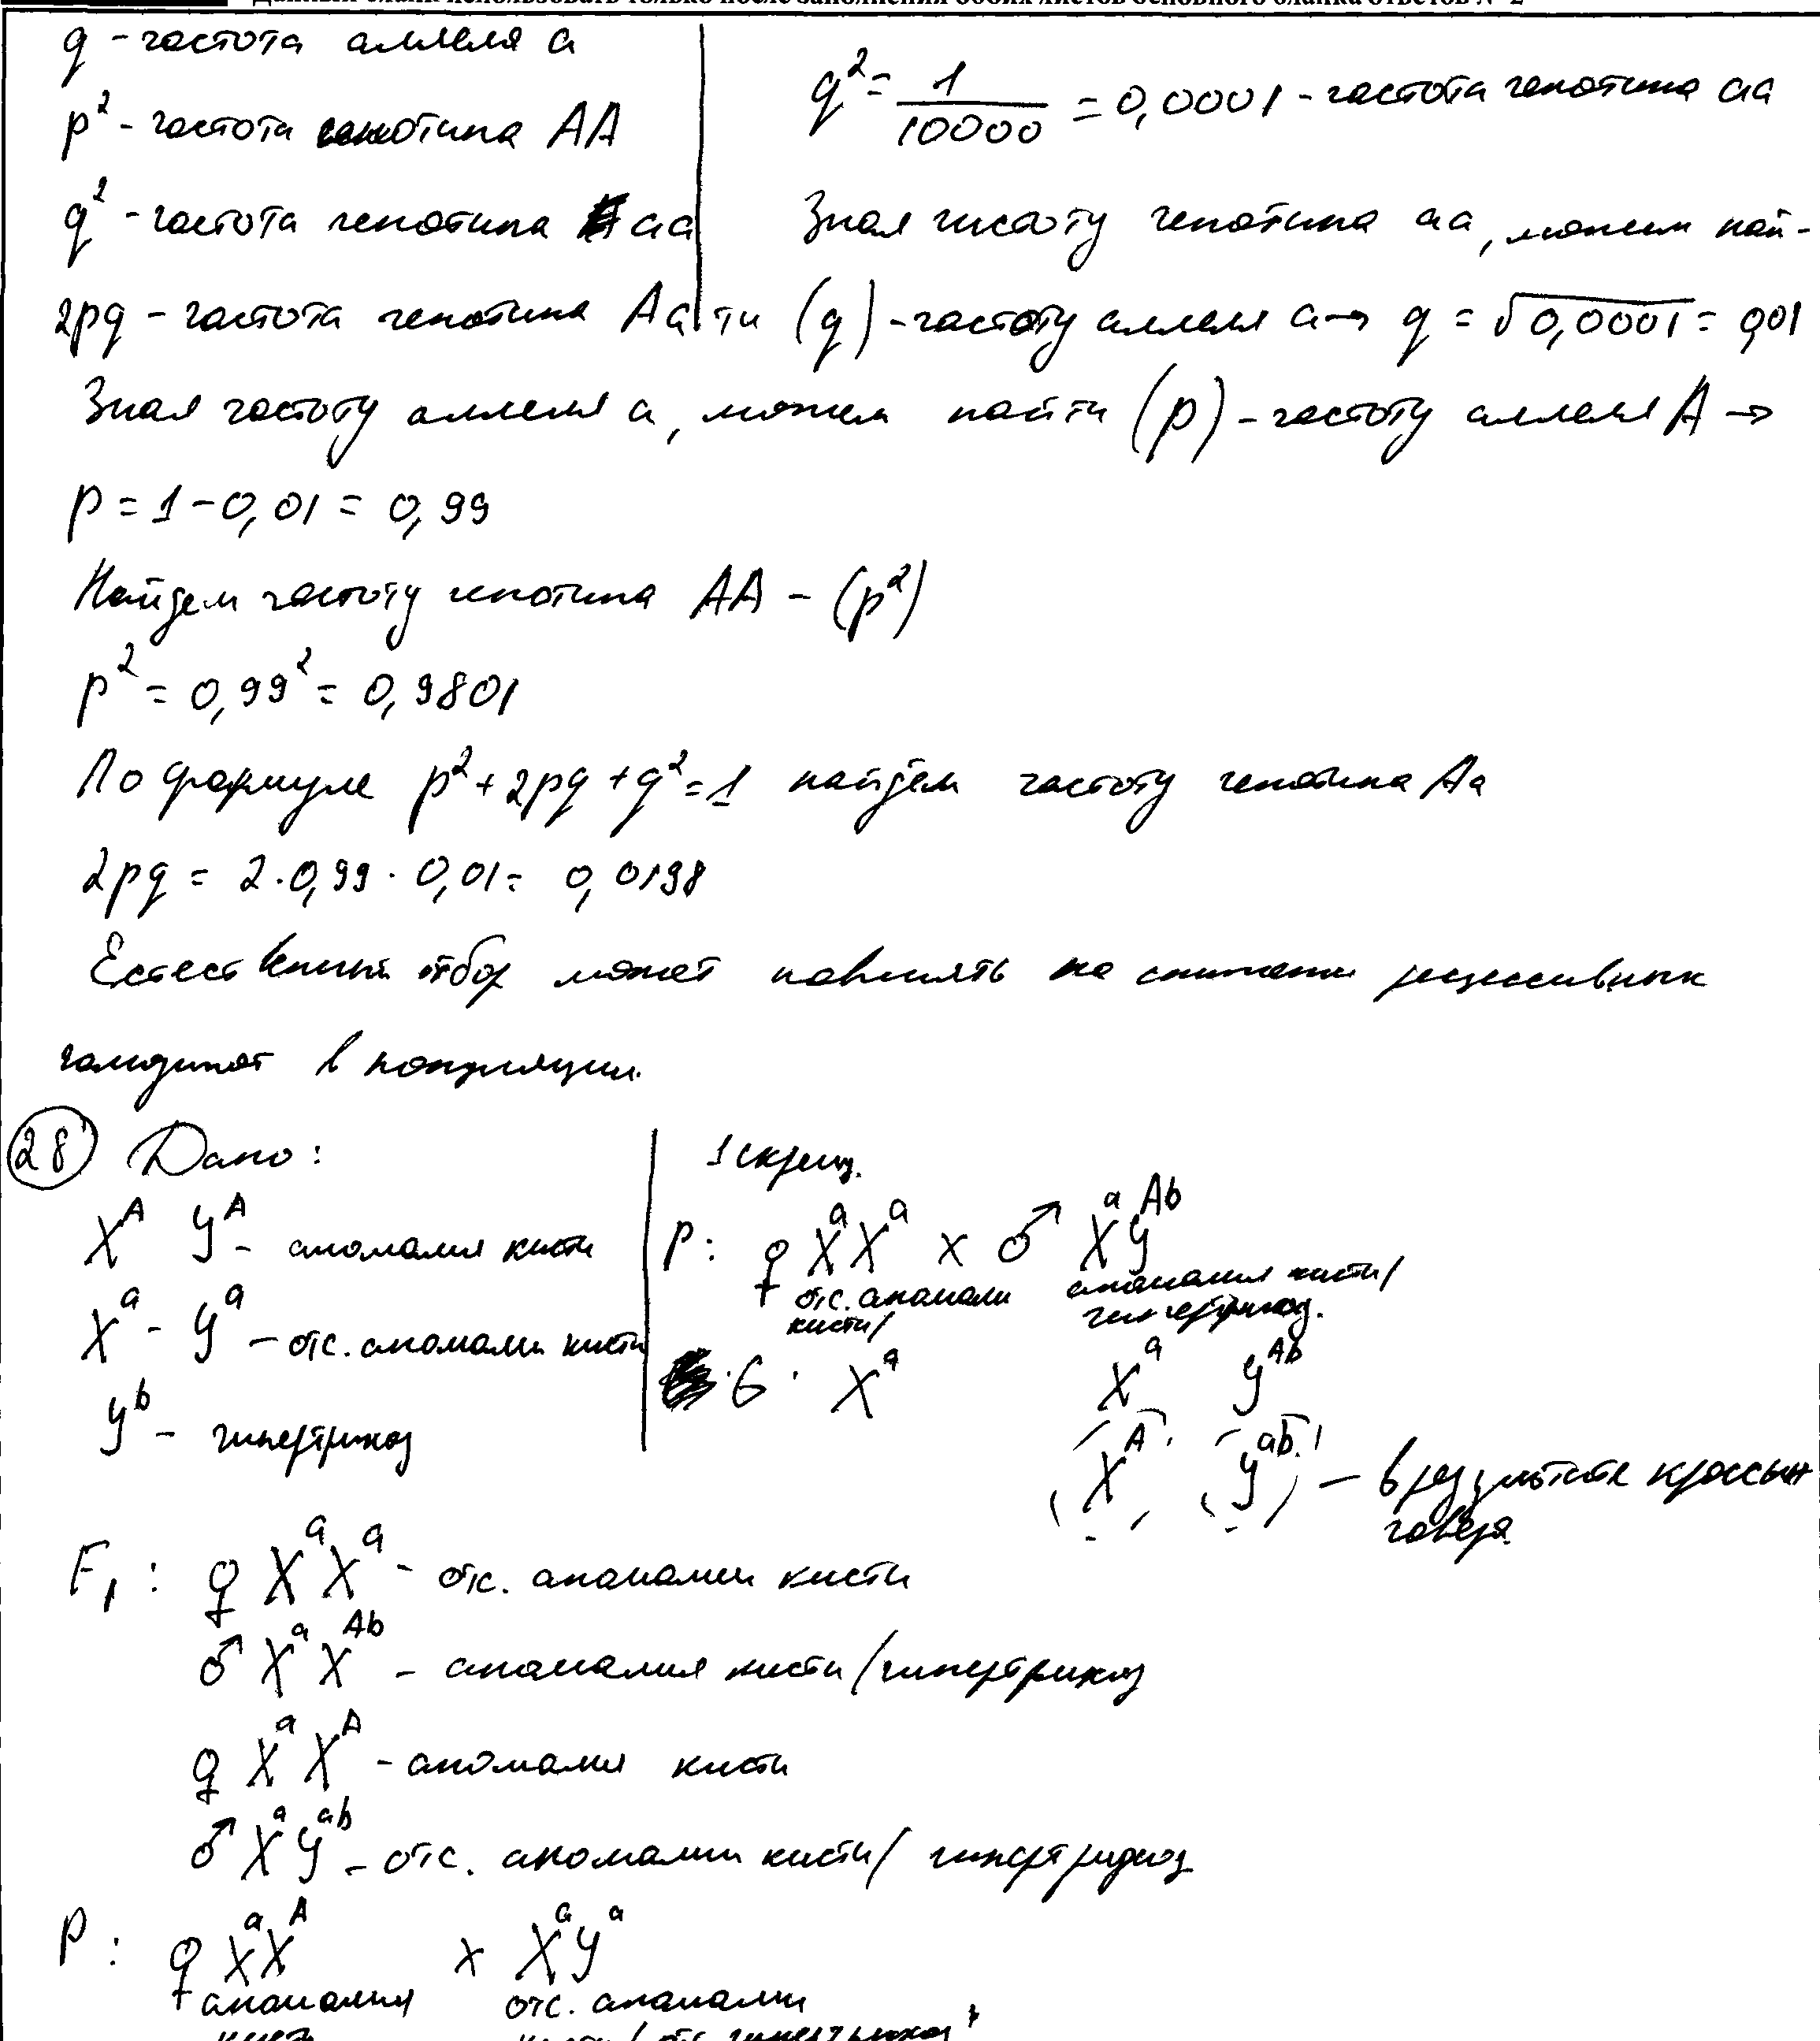 Данный бланк использовать только после заполнения обоих листов основного бланка ответов № 2
q - частота аллеля a
p² - частота генотипа AA
q² - частота генотипа aa
2pq - частота генотипа Aa
q² = 1/10000 = 0,0001 - частота генотипа aa
Зная частоту генотипа aa, можем най-
ти (q) - частоту аллеля a → q = √0,0001 = 0,01
Зная частоту аллеля a, можем найти (p) - частоту аллеля A →
p = 1 - 0,01 = 0,99
Найдем частоту генотипа AA - (p²)
p² = 0,99² = 0,9801
По формуле p² + 2pq + q² = 1 найдем частоту генотипа Aa
2pq = 2 · 0,99 · 0,01 = 0,0198
Естественный отбор может повлиять на снижение рецессивных
гомозигот в популяции.
28) Дано:
X^A Y^A - аномалия кисти
X^a - Y^a - отс. аномали кисти
Y^b - гипертрихоз
1 скрещ.
P: ♀ X^a X^a x ♂ X^a Y^Ab
отс. аномали кисти/
аномалия кисти/ гипертрихоз.
G: X^a X^a Y^Ab
X^A Y^ab - в результате кроссин
говера
F₁: ♀ X^a X^a - отс. аномалии кисти
♂ X^a X^Ab - аномалия кисти/гипертрихоз
♀ X^a X^A - аномалия кисти
♂ X^a Y^ab - отс. аномалии кисти/ гипертрихоз
P: ♀ X^a X^A x X^a Y^a
аномалия отс. аномалии
кисти кисти / отс. гипертрихоз